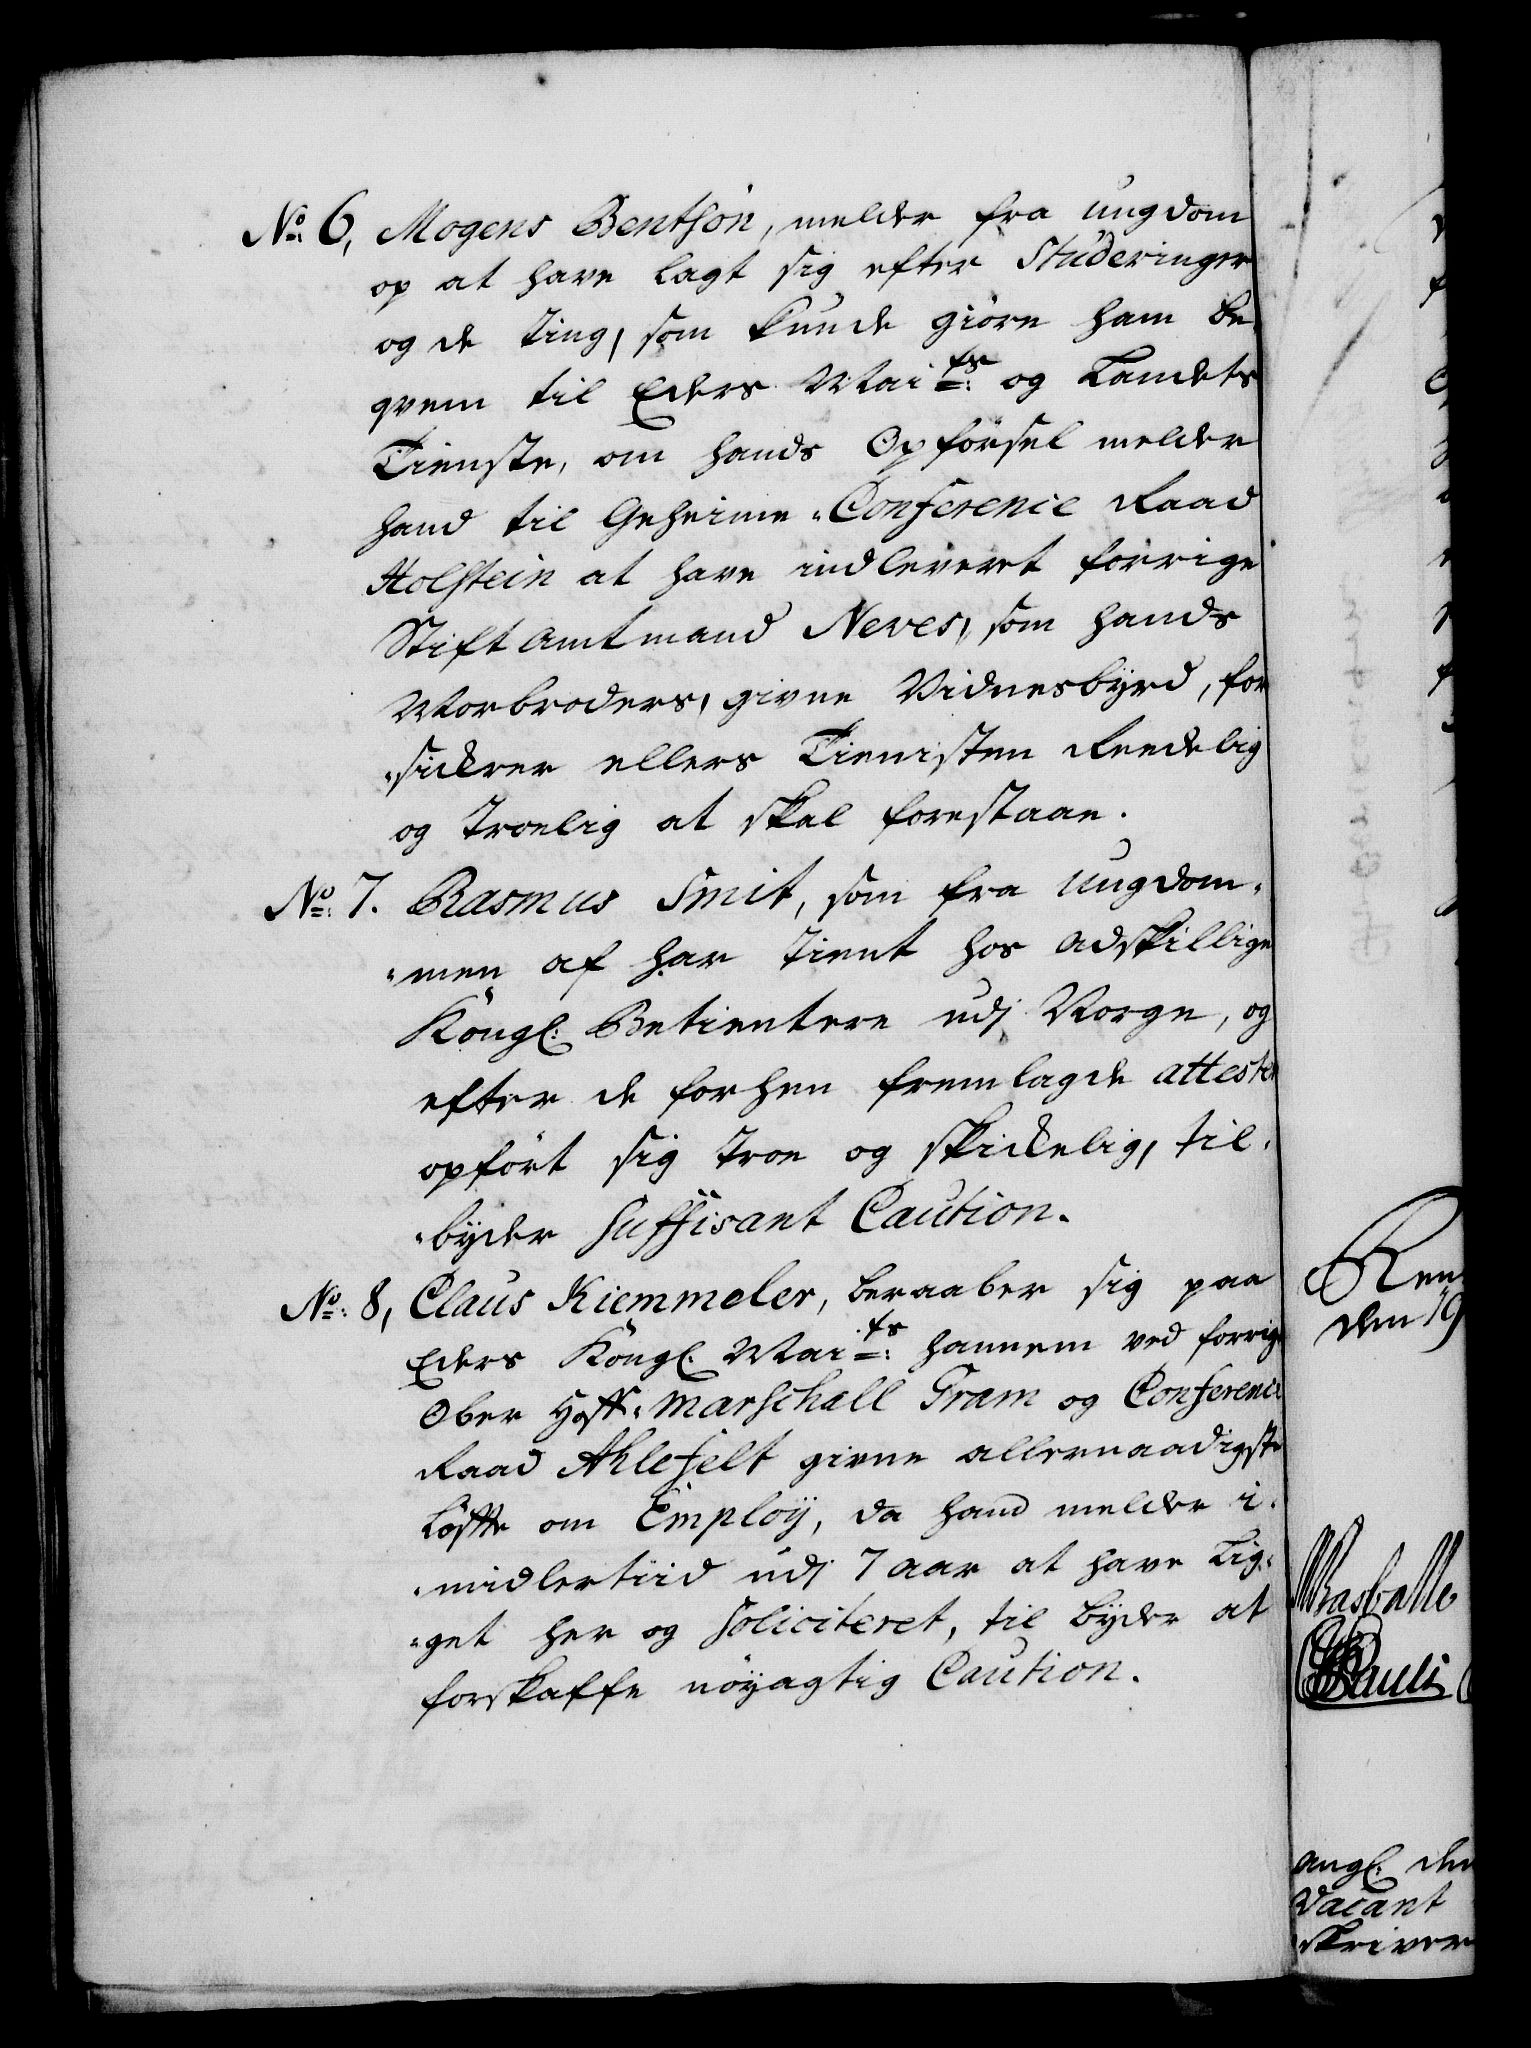 No: 6, Mogens Bentsön, melder fra ungdom
op at have lagt sig efter Studeringer
og de Ting, som kunde giöre ham be
qvem til Eders Maits: og Landets
Tieniste, om hands Opförsel melder
hand til Geheime-Conference Raad
Holstein at have indleveret forrige
Stift Amtmand Neves, som hands
Morbroders, givne Vidnesbyrd, for
-sickrer ellers Tienisten Reedelig
og Troelig at skal forestaae.
No: 7. Rasmus Smit, som fra ungdom-
-men af har tient hos adskillige
Kongl: Betientere udj Norge, og
efter de forhen fremlagde attester
opfört sig troe og skickelig, til-
-byder suffisant Caution.
No: 8, Claus Kiemmeler, beraaber sig paa
Eders Kongl: Maits: hannem ved forrige
Ober Hoff-Marschall Gram og Conference
Raad Ahlefelt givne allernaadigste
Löfte om Employ, da hand melder i-
-midlertiid udj 7 aar at have lig-
-get her og soliciteret, til byder at
forskaffe nöyagtig Caution.
Ren
den 19
Pauli
angl: den
Vacant
skriver